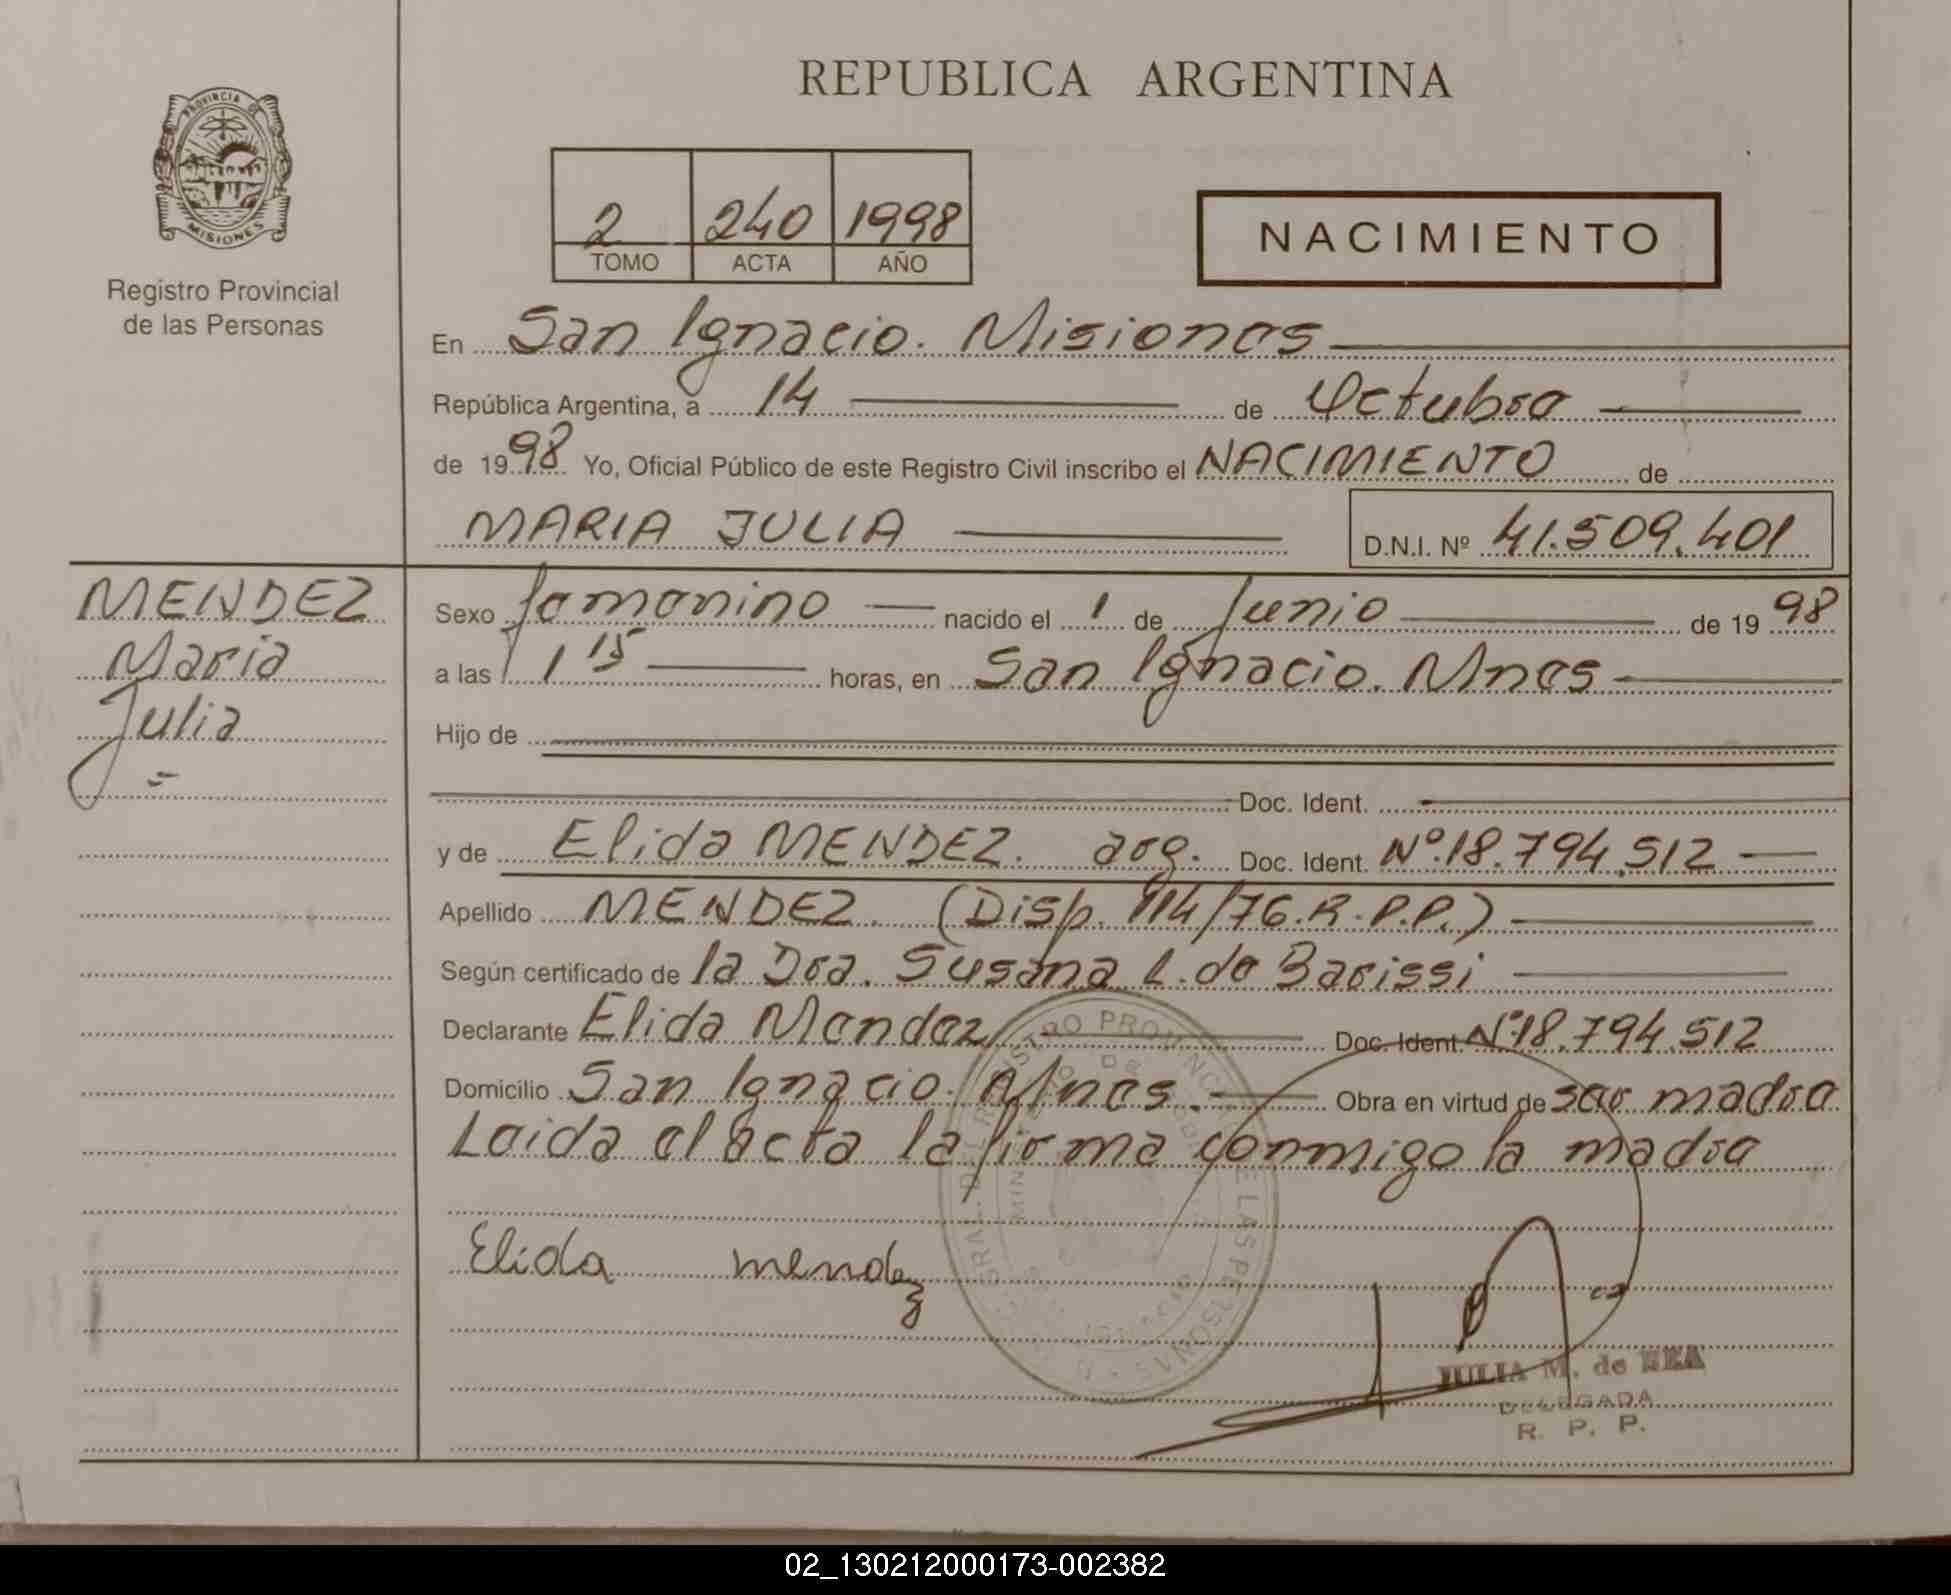 REPUBLICA ARGENTINA
PROVINCIA DE
MISIONES
Registro Provincial
de las Personas
2 240 1998
TOMO ACTA AÑO
NACIMIENTO
En San Ignacio. Misiones
República Argentina, a 14 de Octubre
de 1998 Yo, Oficial Público de este Registro Civil inscribo el NACIMIENTO de
MARIA JULIA D.N.I. Nº 41.509.401
MENDEZ
Maria
Julia
=
Sexo femenino nacido el 1 de Junio de 1998
a las 1 15 horas, en San Ignacio. Mnes
Hijo de
Doc. Ident.
y de Elida MENDEZ. arg. Doc. Ident. Nº.18.794.512
Apellido MENDEZ. (Disp. 114/76.R.P.P.)
Según certificado de la Dra. Susana L. de Barissi
Declarante Elida Mendez Doc. Ident. Nº18.794.512
Domicilio San Ignacio. Mnes. Obra en virtud de ser madre
Leida el acta la firma conmigo la madre
Elida mendez
JULIA M. de REA
DELEGADA
R. P. P.
02_130212000173-002382